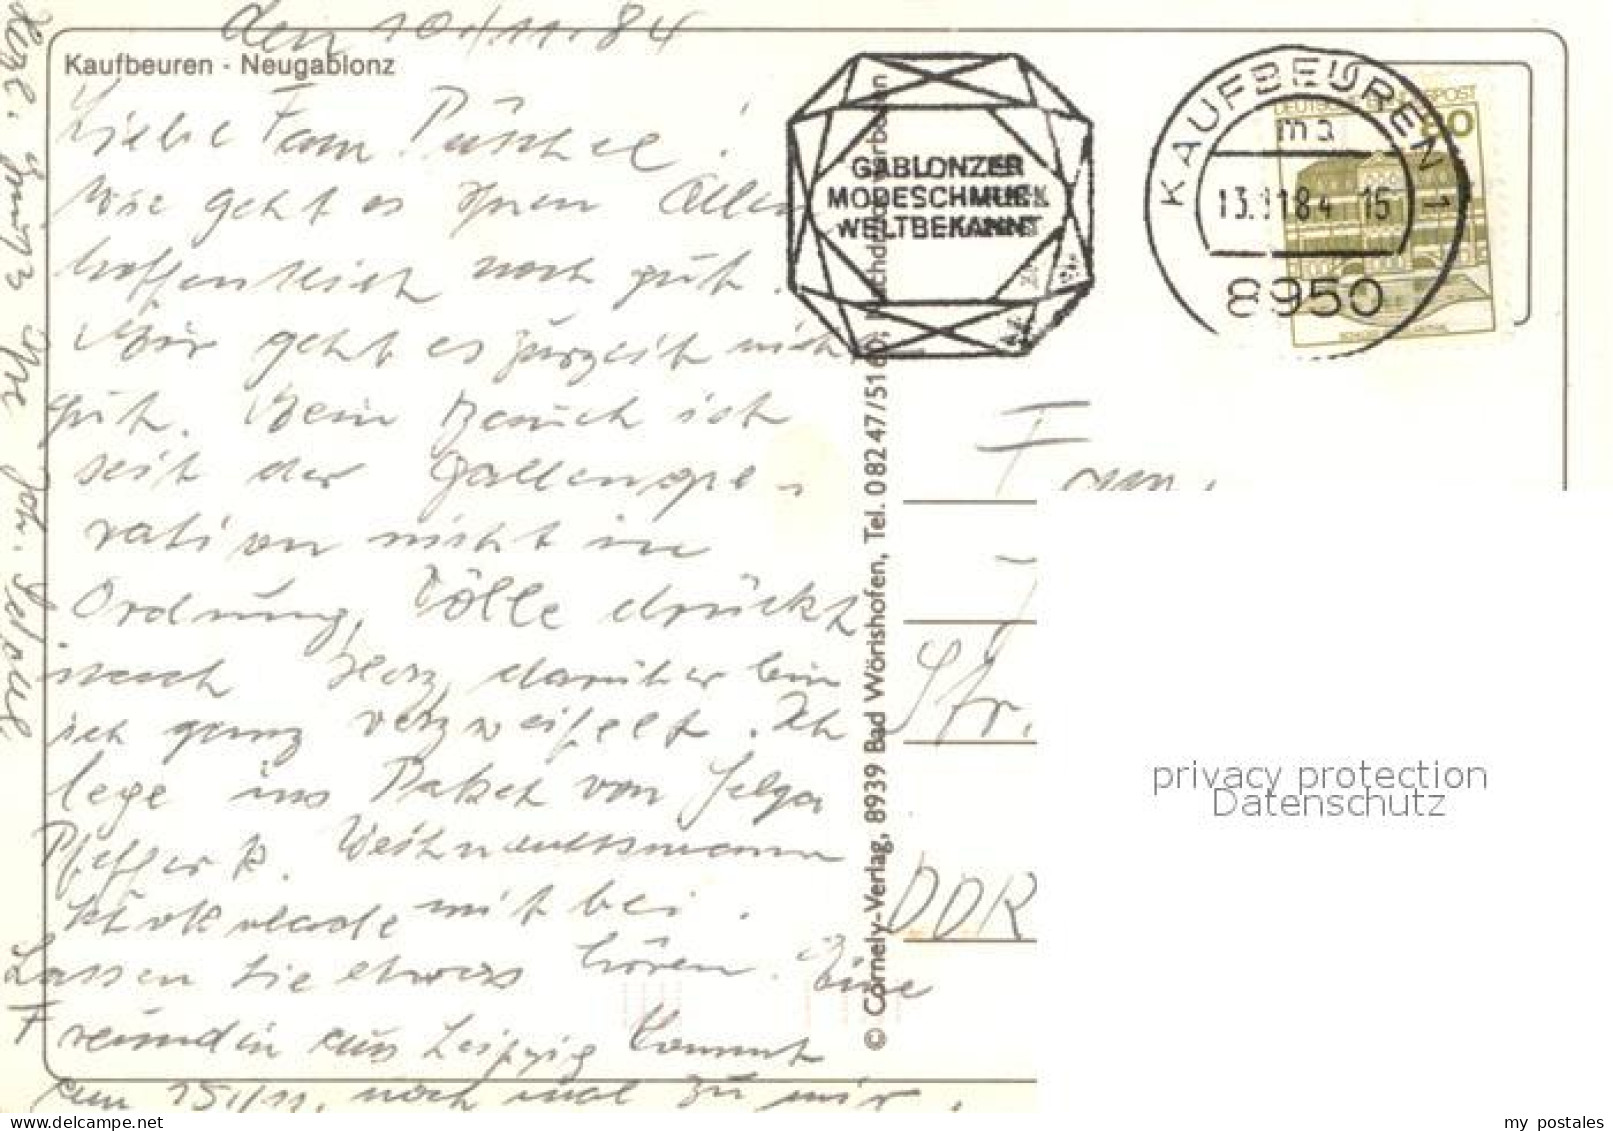 den 10./11.84
Kaufbeuren - Neugablonz
Liebe Fam. Püschel!
Wie geht es Ihnen Allen
hoffentlich noch gut.
Mir geht es zurzeit nicht
gut. Mein Bauch ist
seit der Gallenope-
ration nicht in
Ordnung, Völle drückt
nach Herz, darüber bin
ich ganz verzweifelt. Ich
lege ins Paket von Helga
Pfeffer k. Weihnachtsmann
mit bei.
Lassen Sie etwas hören. Eine
Freundin aus Leipzig kommt
am 15./11. noch mal zu mir.
Herzl. Grüße Ihre Joh.
© Cornely-Verlag, 8939 Bad Wörishofen, Tel. 0 82 47/51 60,
GABLONZER
MODESCHMUCK
WELTBEKANNT
KAUFBEUREN 1
ma
13.11.84-15
8950
DEUTSCHE BUNDESPOST
80
Fam.
Str.
DDR
privacy protection
Datenschutz
my postales
www.delcampe.net